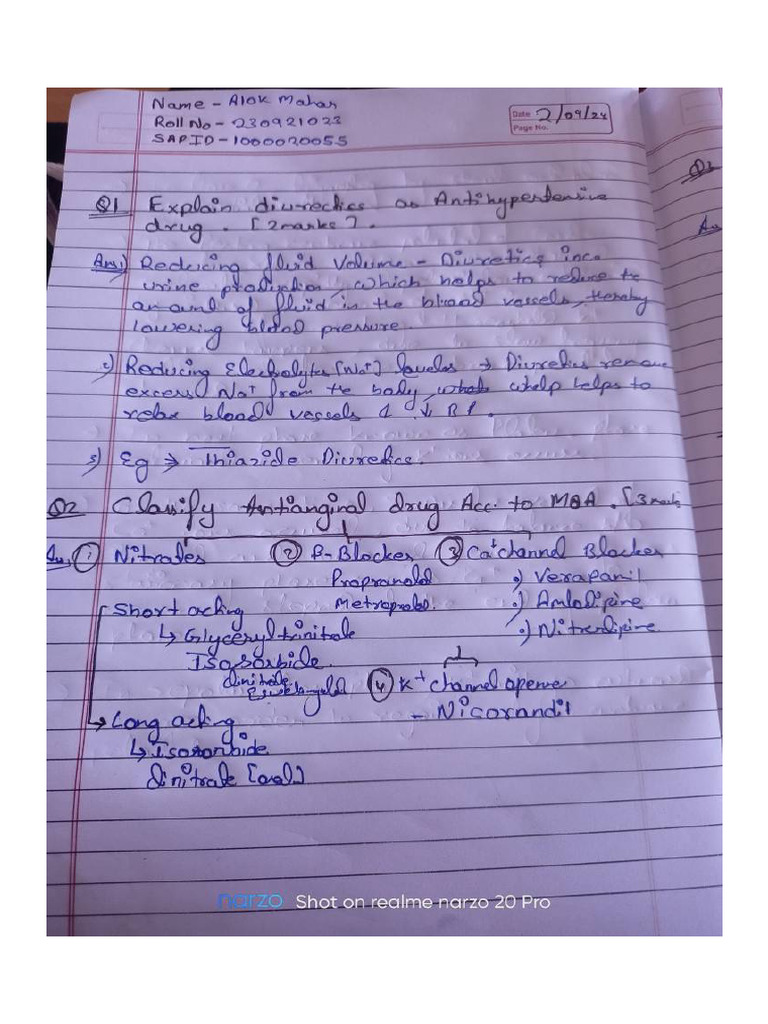 Name - Alok Mahar
Roll No - 230921023
SAP ID - 1000020055
Date 2/09/24
Page No.
Q3
Q1 Explain diurectics as Antihypertensive
drug. [2 marks].
Ans 1) Reducing fluid Volume - Diuretics inc.
urine production, which helps to reduce the
amount of fluid in the blood vessels, thereby
lowering blood pressure.
2) Reducing Electrolytes [Na+] levels → Diuretics remove
excess Na+ from the body, whelp helps to
relax blood vessels & ↓ B P.
3) Eg → Thiazide Diuretics.
Q2 Classify Antianginal drug Acc. to MOA. [3 marks
Ans ① Nitrates ② B-Blocker ③ Ca+ channel Blocker
Propranolol •) Verapamil
Short acking Metroprolol •) Amlodipine
↳ Glyceryl trinitrate •) Nitredipine
Isosorbide
dinitrate ④ K+ channel opener
- Nicorandil
→ Long acking
↳ Isosorbide
dinitrate [oral]
narzo Shot on realme narzo 20 Pro